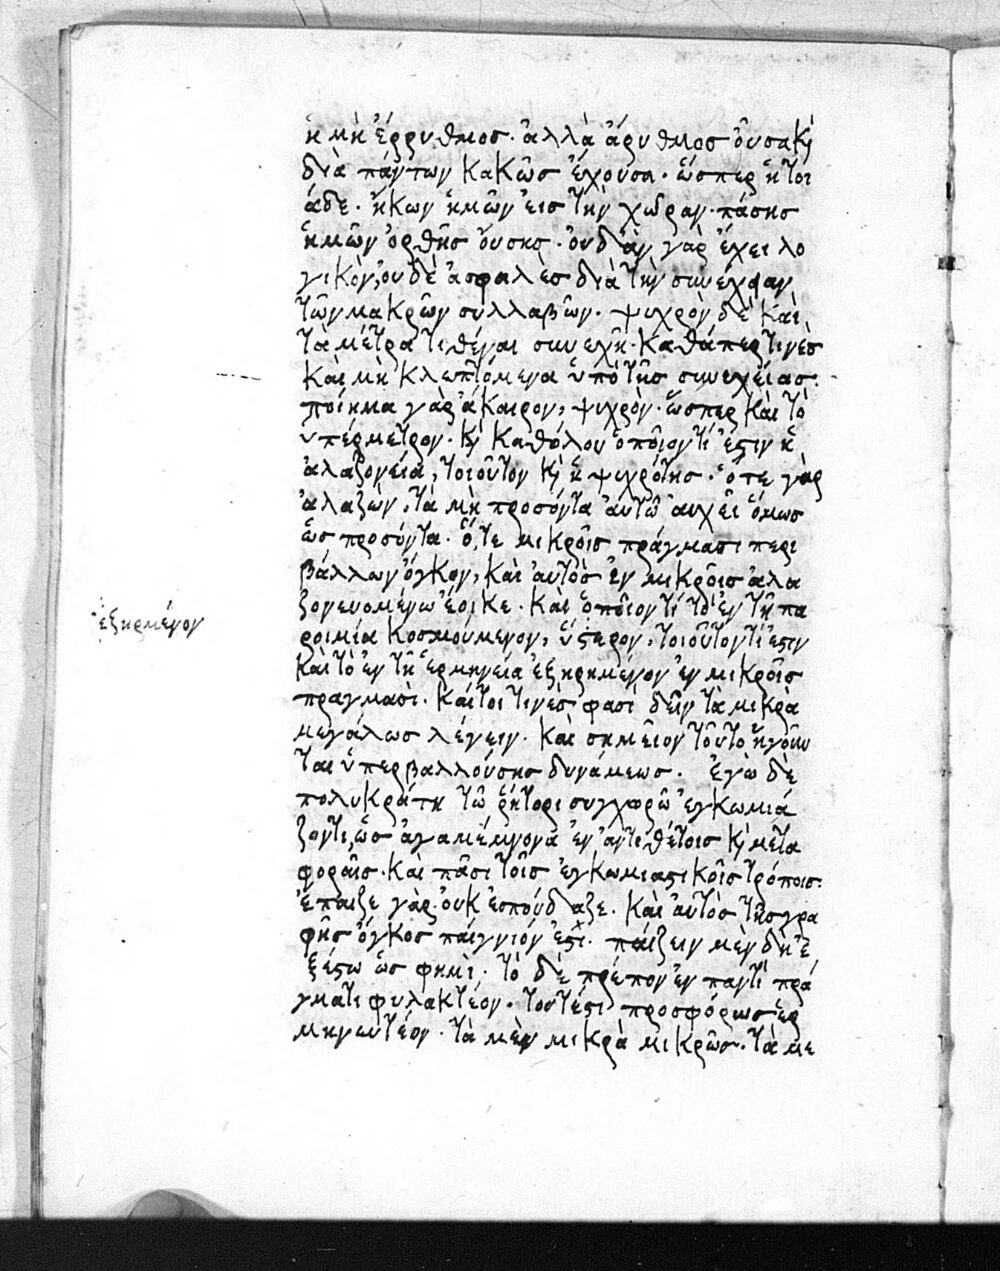 ἡ μὴ ἔρρυθμος· ἀλλὰ ἄρυθμος οὖσα κ(αὶ)
διὰ πάντων κακῶς ἔχουσα· ὥσπερ ἡ τοι
άδε· ἥκων ἡμῶν εἰς τὴν χώραν· πάσης
ἡμῶν ὀρθῆς οὔσης· οὐδὲν γὰρ ἔχει λο
γικὸν, οὐδὲ ἀσφαλὲς διὰ τὴν συνέχειαν
τῶν μακρῶν συλλαβῶν· ψυχρὸν δὲ καὶ
τὰ μέτρα τιθέναι συνεχῆ· καθάπερ τινὲς
καὶ μὴ κλεπτόμενα ὑπὸ τῆς συνεχείας·
ποίημα γὰρ ἄκαιρον, ψυχρὸν· ὥσπερ καὶ τὸ
ὑπέρμετρον· κ(αὶ) καθόλου ὁποῖον τί ἐστιν ἡ
ἀλαζονεία, τοιοῦτον κ(αὶ) ἡ ψυχρότης· ὅ τε γὰρ
ἀλαζὼν, τὰ μὴ προσόντα αὐτῶ αὐχεῖ ὅμως
ὡς προσόντα· ὅ, τε μικροῖς πράγμασι περι
βάλλων ὄγκον, καὶ αὐτὸς ἐν μικροῖς ἀλα
ζονευομένω ἔοικε· καὶ ὁποῖον τί τὸ ἐν τῆ πα
ροιμία κοσμούμενον, ὕπερον, τοιοῦτον τί ἐστιν
καὶ τὸ ἐν τῆ ἑρμηνεία ἐξηρημένον ἐν μικροῖς
πράγμασι· καίτοι τινὲς φασὶ δεῖν τὰ μικρὰ
μεγάλως λέγειν· καὶ σημεῖον τοῦτο ἡγοῦν
ται ὑπερβαλλούσης δυνάμεως· ἐγὼ δὲ
πολυκράτη τῶ ῥήτορι συγχωρῶ ἐγκωμιά
ζοντι, ὡς ἀγαμέμνονα ἐν ἀντιθέτοις κ(αὶ) μετα
φοραῖς· καὶ πᾶσι τοῖς ἐγκωμιαστικοῖς τρόποις·
ἔπαιζε γὰρ. οὐκ ἐσπούδαζε· καὶ αὐτὸς τῆς γρα
φῆς ὄγκος παίγνιόν ἐστι· παίζειν μὲν δὴ ἐ
ξέστω ὡς φημὶ· τὸ δὲ πρέπον ἐν παντὶ πρά
γματι φυλακτέον· τουτέστι προσφόρως ἑρ
μηνευτέον· τὰ μὲν μικρὰ μικρῶς· τὰ με
ἐξηρμένον